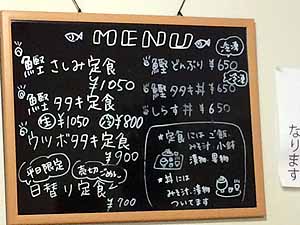 MENU
鰹さしみ定食
¥1050
鰹タタキ定食
¥1050 ¥800
ウツボタタキ定食
¥900
平日限定
売切ごめん
日替り定食
¥700
冷凍
鰹どんぶり ¥650
鰹タタキ丼 ¥650
しらす丼 ¥650
*定食にはご飯、
みそ汁・小鉢
漬物・果物
*丼には
みそ汁・漬物
ついてます
なります